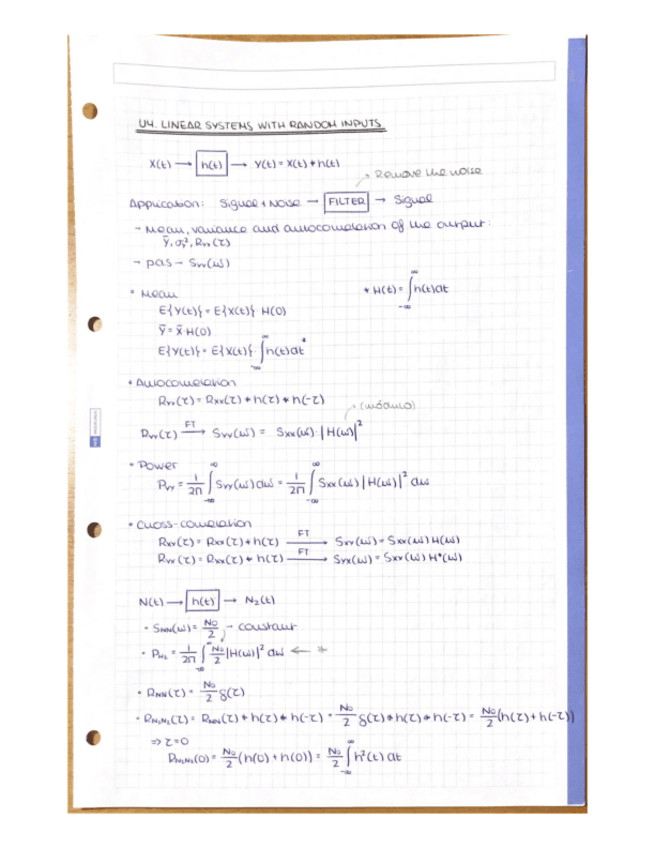 U4. LINEAR SYSTEMS WITH RANDOM INPUTS
X(t) → h(t) → Y(t) = X(t) * h(t)
Remove the noise
Application: Signal + Noise → FILTER → Signal
- Mean, variance and autocorrelation of the output:
Ȳ, σ², Ryy(τ)
- pds - Syy(ω)
• Mean
* H(t) = ∫_{-∞}^{∞} h(t)dt
E{Y(t)} = E{X(t)} · H(0)
Ȳ = X̄·H(0)
E{Y(t)} = E{X(t)} · ∫_{-∞}^{∞} h(t)dt *
• Autocorrelation
Ryy(τ) = Rxx(τ) * h(τ) * h(-τ)
(módulo)
Ryy(τ) FT→ Syy(ω) = Sxx(ω)·|H(ω)|²
• Power
Pyy = 1/2π ∫_{-∞}^{∞} Syy(ω)dω = 1/2π ∫_{-∞}^{∞} Sxx(ω)|H(ω)|² dω
• Cross-correlation
Rxy(τ) = Rxx(τ) * h(τ) FT→ Sxy(ω) = Sxx(ω)H(ω)
FT→
N(t) → h(t) → N₂(t)
• SNN(ω) = N₀/2 → constant
• PN₂ = 1/2π ∫ N₀/2 |H(ω)|² dω ← *
• RNN(τ) = N₀/2 δ(τ)
• RN₂N₂(τ) = RNN(τ) * h(τ) * h(-τ) = N₀/2 δ(τ) * h(τ) * h(-τ) = N₀/2 (h(τ) + h(-τ))
⇒ τ=0
RN₂N₂(0) = N₀/2 (h(0) + h(0)) = N₀/2 ∫_{-∞}^{∞} h²(t) dt